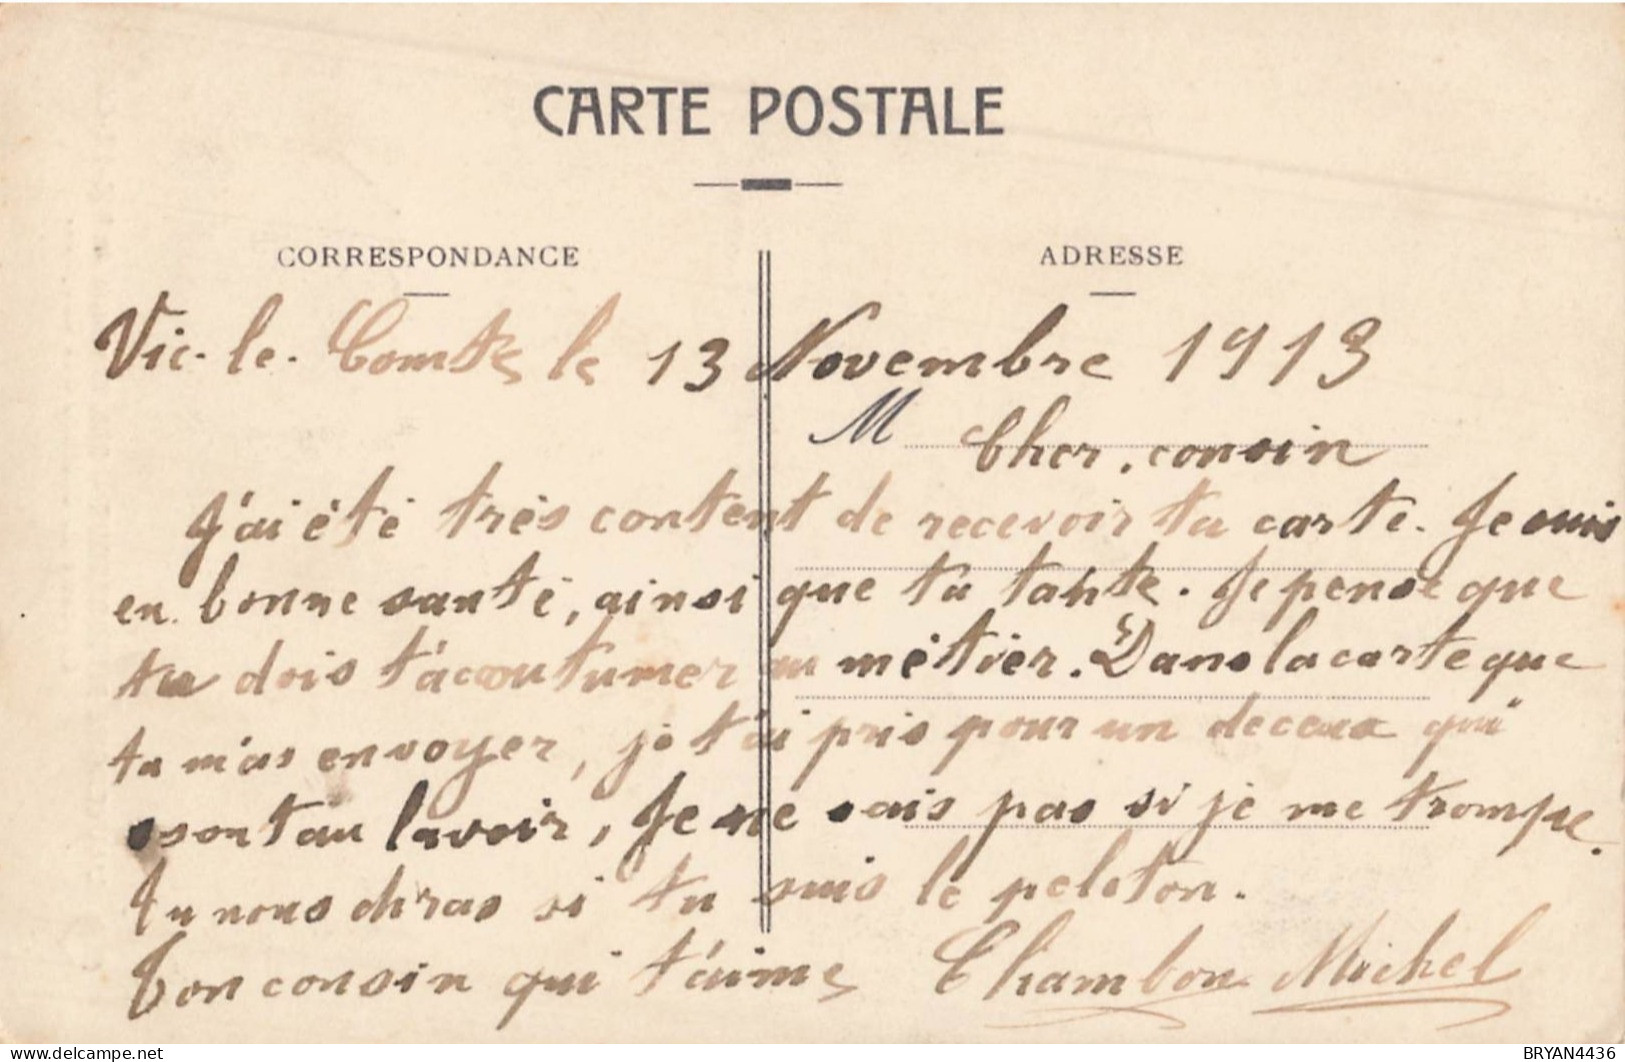 CARTE POSTALE
CORRESPONDANCE
ADRESSE
Vic-le-Comte le 13 Novembre 1913
M
Cher cousin
J'ai été très content de recevoir ta carte. Je suis
en bonne santé, ainsi que ta tante. Je pense que
tu dois t'acoutumer au métier. Dans la carte que
tu m'as envoyer, je t'ai pris pour un de ceux qui
sont au lavoir, Je ne sais pas si je me trompe.
Tu nous diras si tu suis le peloton.
Ton cousin qui t'aime Chambon Michel
BRYAN4436
delcampe.net